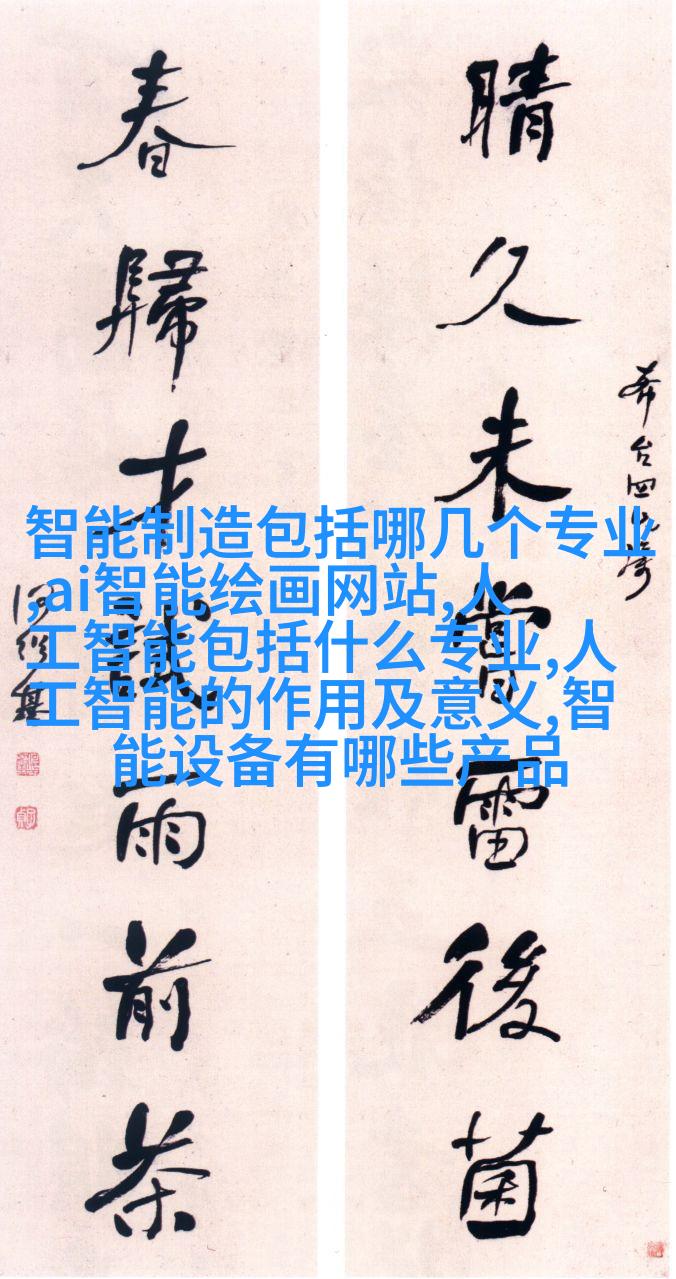 晴久未嘗雷後菌
春歸才識雨前茶
何紹基
智能制造包括哪几个专业
,ai智能绘画网站,人
工智能包括什么专业,人
工智能的作用及意义,智
能设备有哪些产品